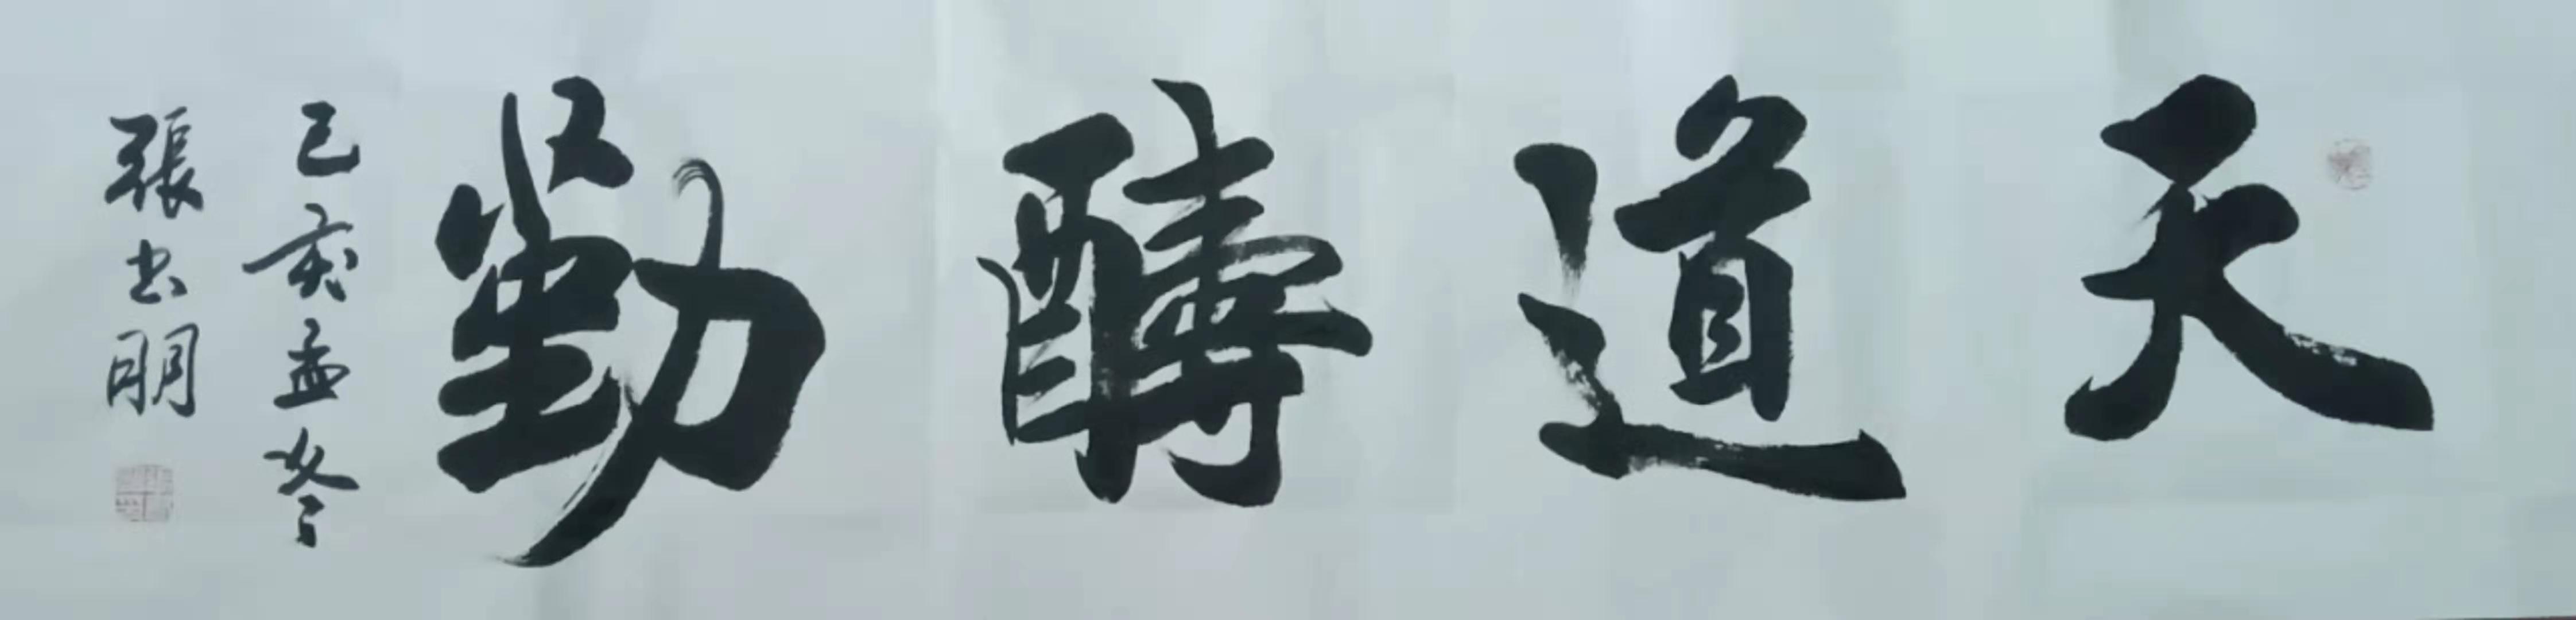 天道酬勤
己亥孟冬
張書朋